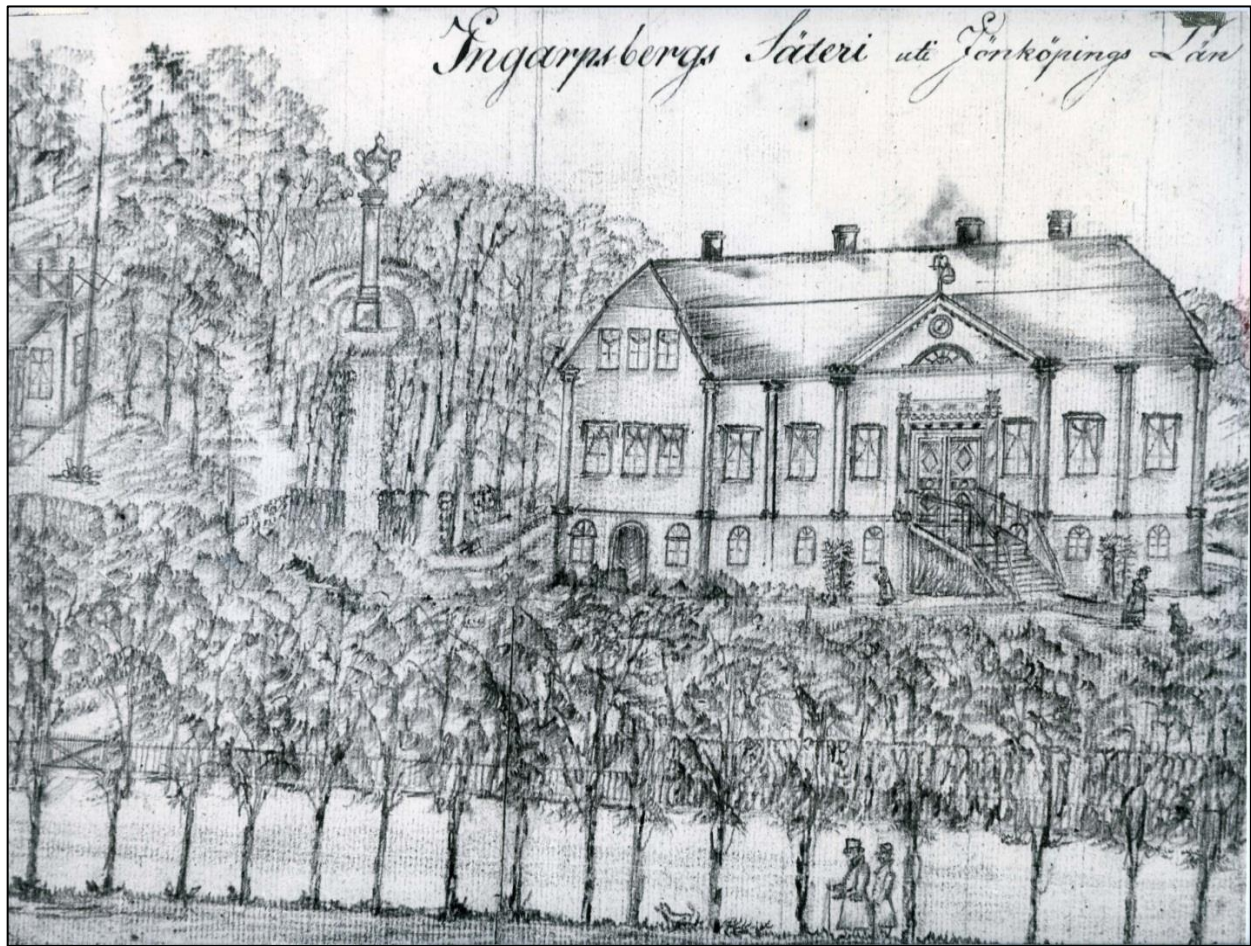 Ingarpsbergs Säteri uti Jönköpings Län